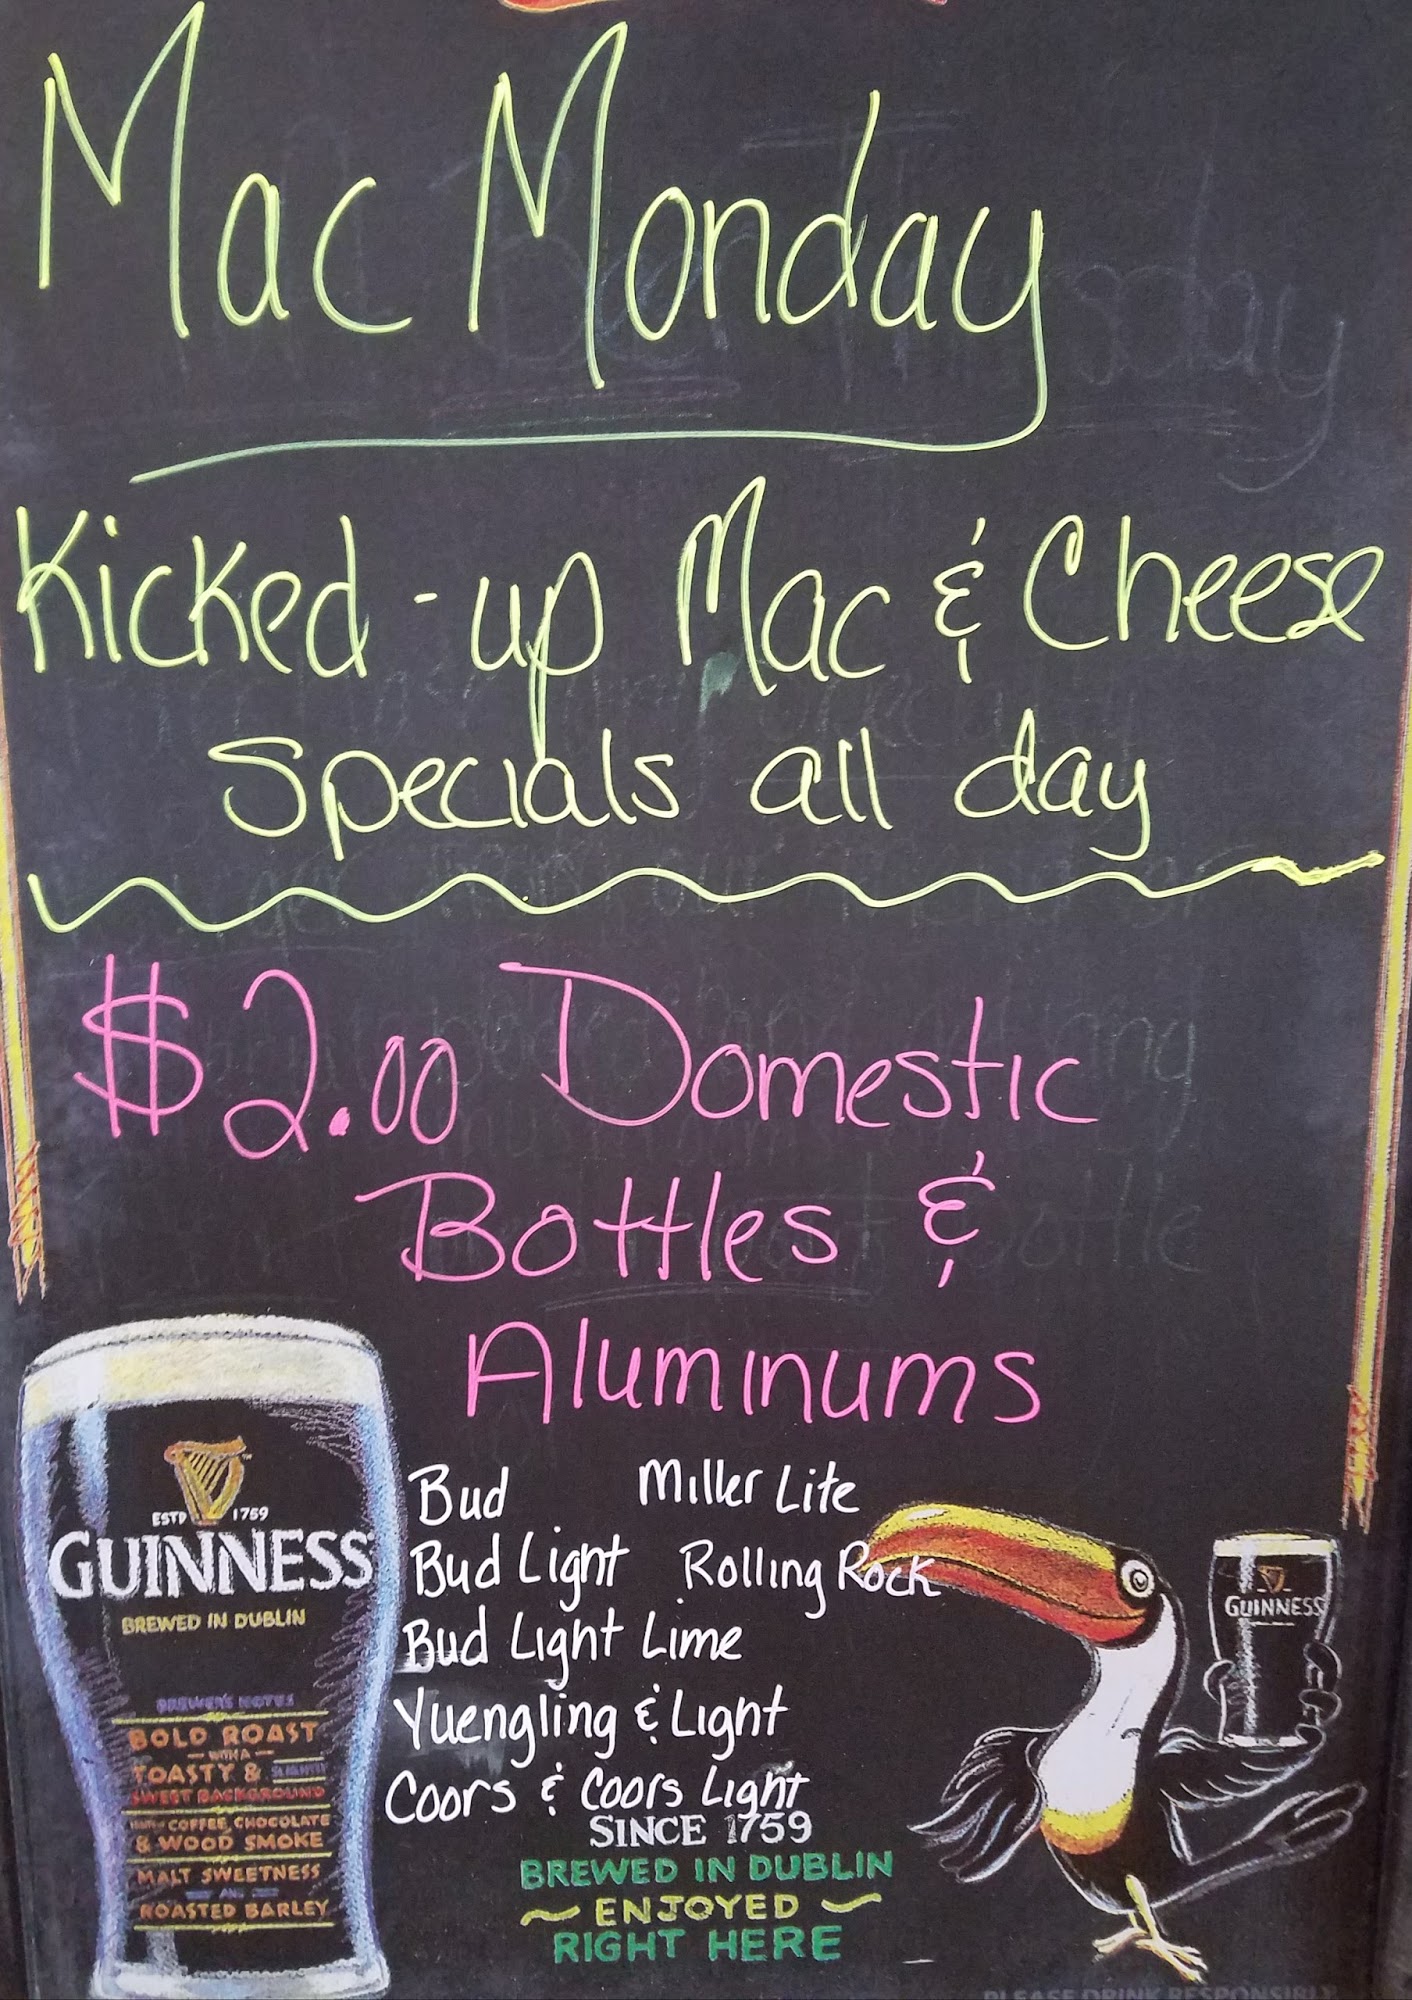 Mac Monday
Kicked-up Mac & Cheese
Specials all day
$2.00 Domestic
Bottles &
Aluminums
Bud Miller Lite
Bud Light Rolling Rock
Bud Light Lime
Yuengling & Light
Coors & Coors Light
SINCE 1759
BREWED IN DUBLIN
ENJOYED
RIGHT HERE
ESTD 1759
GUINNESS
BREWED IN DUBLIN
BREWER'S NOTES
BOLD ROAST
WITH A
TOASTY &
SWEET BACKGROUND
COFFEE, CHOCOLATE
& WOOD SMOKE
MALT SWEETNESS
AND
ROASTED BARLEY
GUINNESS
PLEASE DRINK RESPONSIBLY